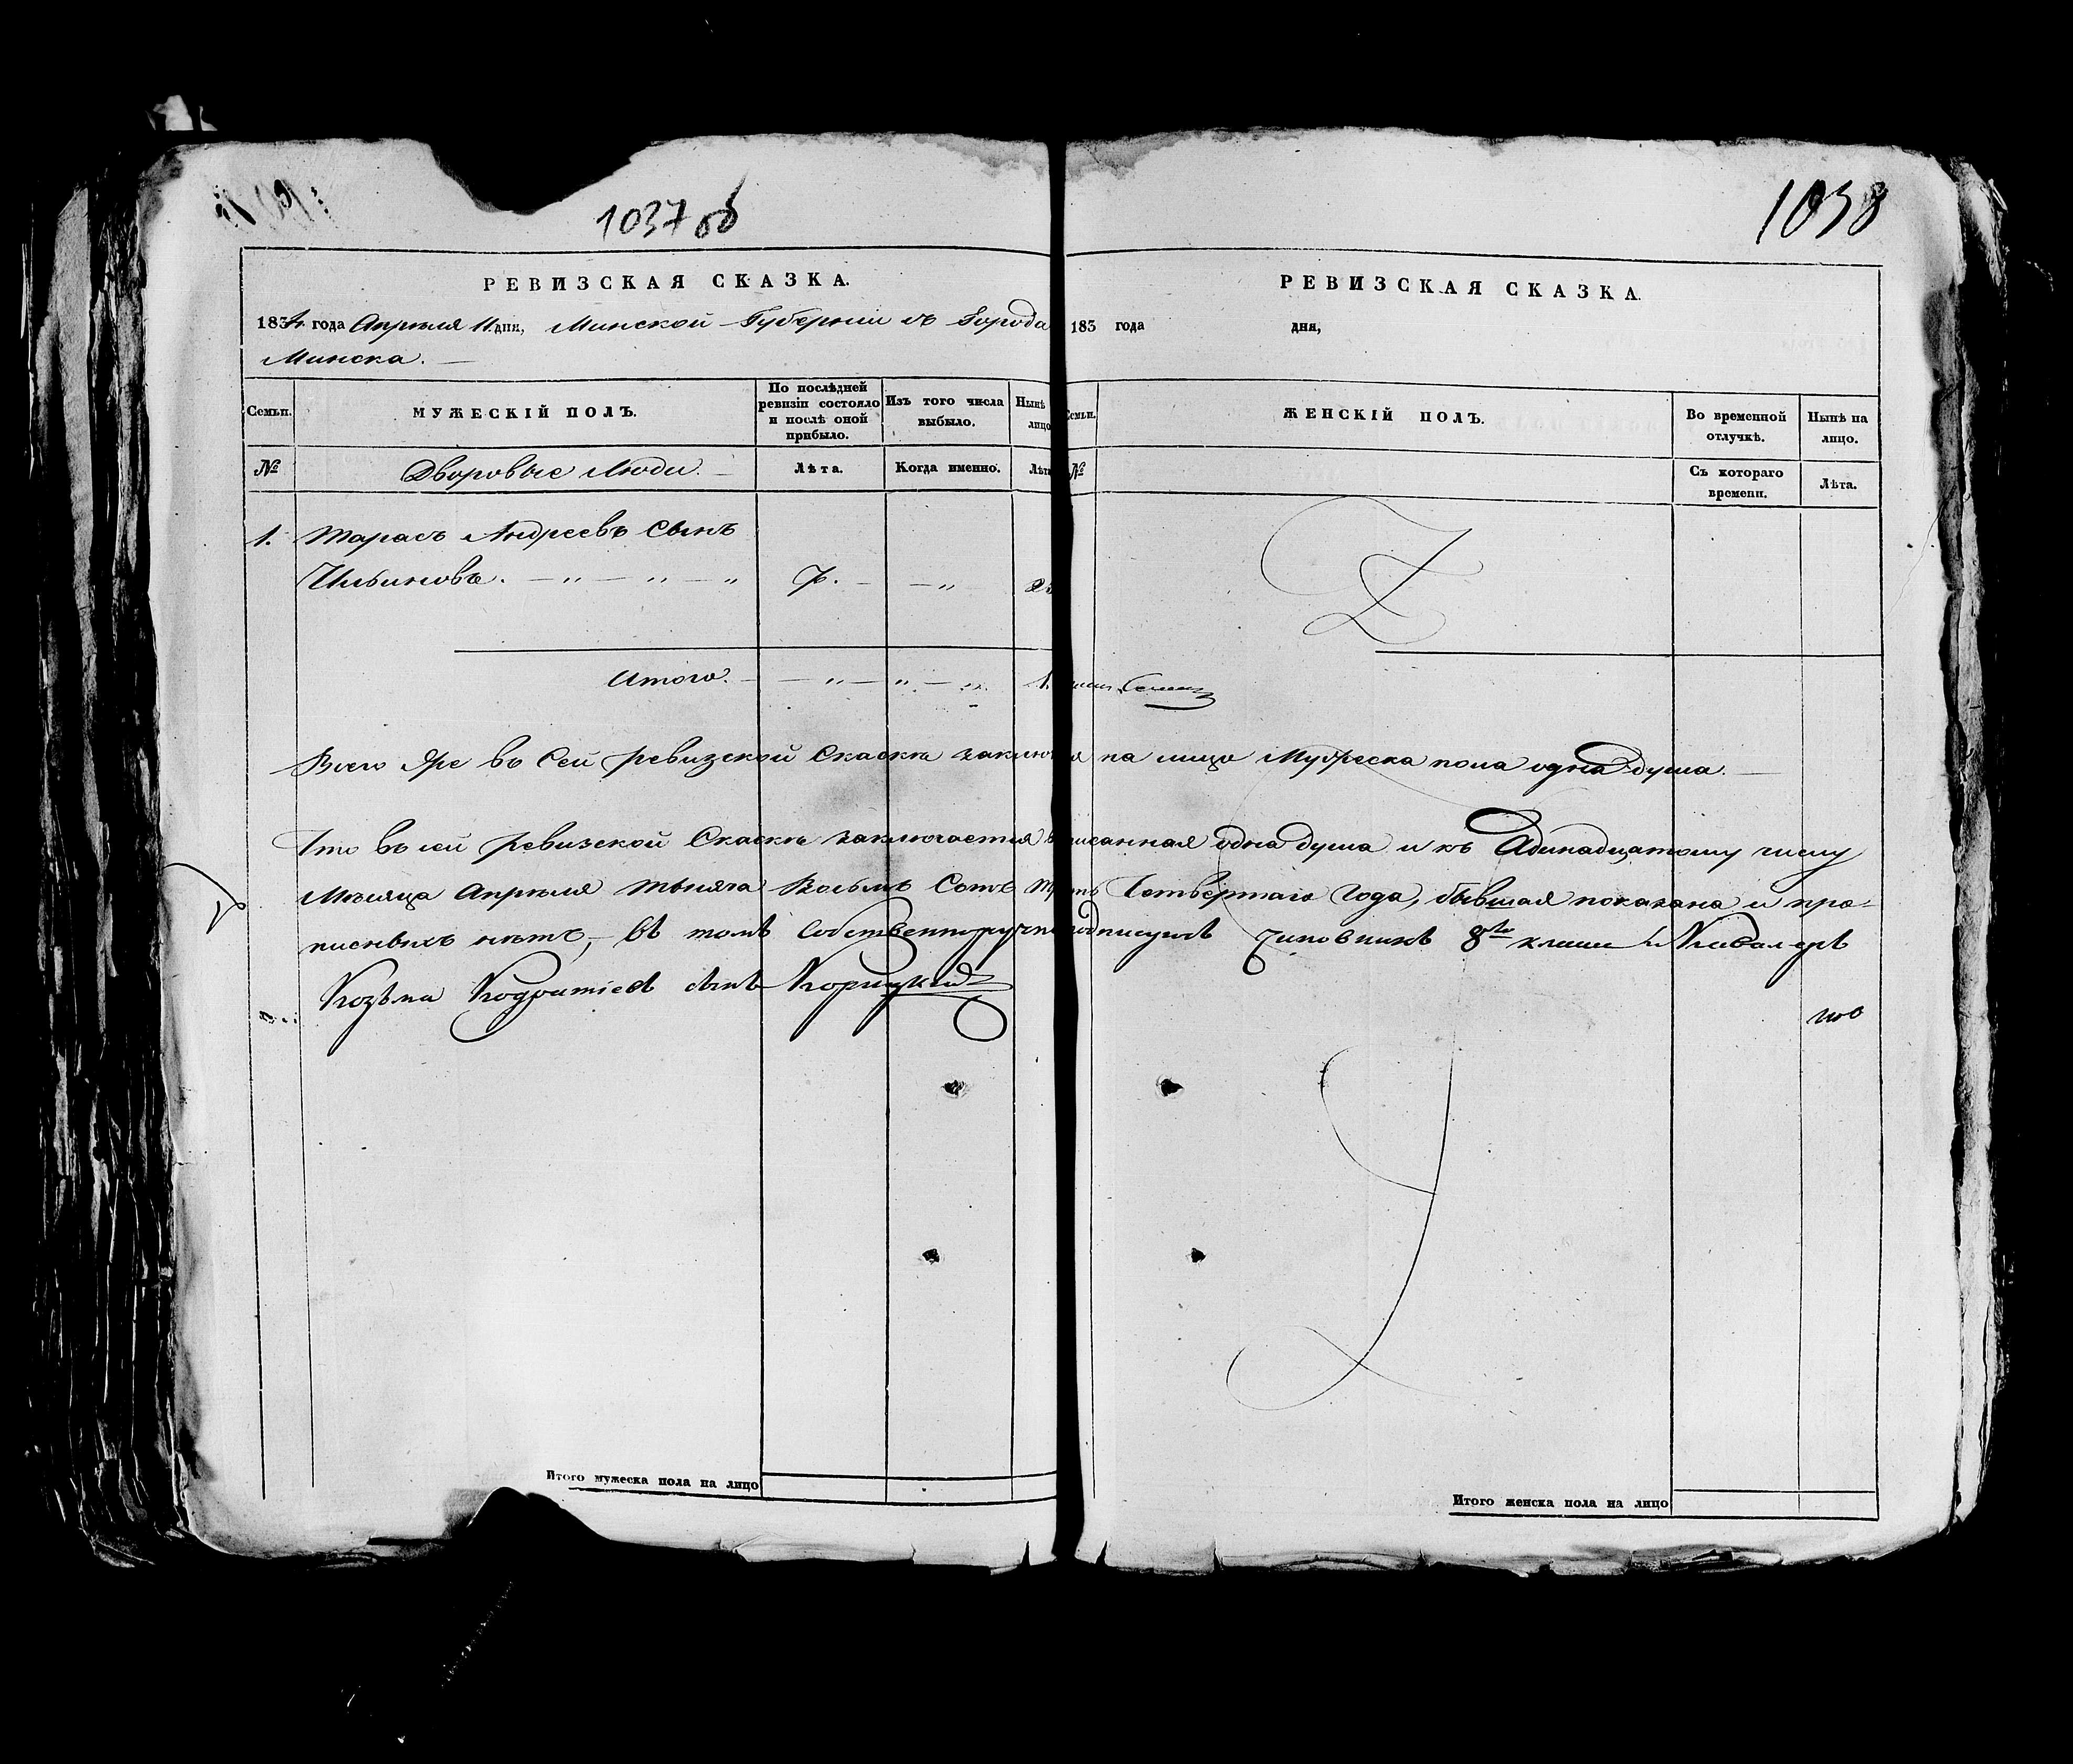 1037 об
РЕВИЗСКАЯ СКАЗКА.
1834 года Апреля 11 дня, Минской Губернии въ Города
Минска.
Семьи.
МУЖЕСКІЙ ПОЛЪ.
По послѣдней ревизіи состояло и послѣ оной прибыло.
Изъ того числа выбыло.
Нынѣ лицо
№
Дворовые Люди.
Лѣта.
Когда именно.
Лѣта
1. Тарасъ Андреевъ Сынъ
7.
Итого. 1.
1038
РЕВИЗСКАЯ СКАЗКА.
183 года дня,
Семьи.
ЖЕНСКІЙ ПОЛЪ.
Во временной отлучкѣ.
Нынѣ на лицо.
№
Съ котораго времени.
Лѣта.
Всего Же въ Сей ревизской Скаскѣ на лицо Мужеска пола одна душа.
Что въ сей ревизской Скаскѣ заключается одна душа и къ Адинадцатому числу
Мѣсяца Апрѣля тысяча Восьмъ Сотъ Четвертаго Года, бывшая показана и про-
писныхъ нѣтъ, въ томъ Чиновникъ 8го класса и Кавалеръ
Козьма сынъ Корицкий
Итого мужеска пола на лицо
Итого женска пола на лицо